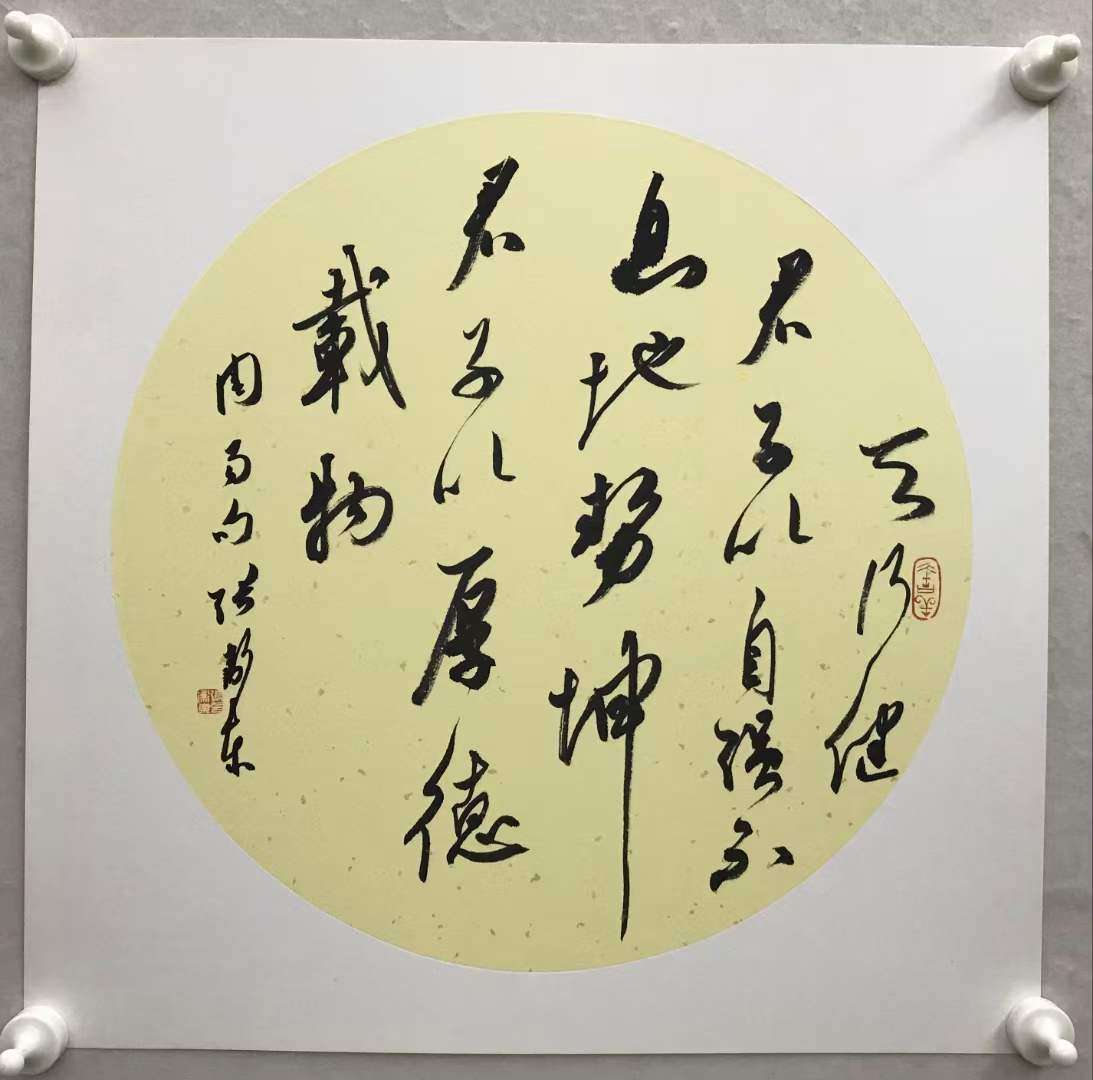 天行健
君子以自强不
息地势坤
君子以厚德
載物
周易句张